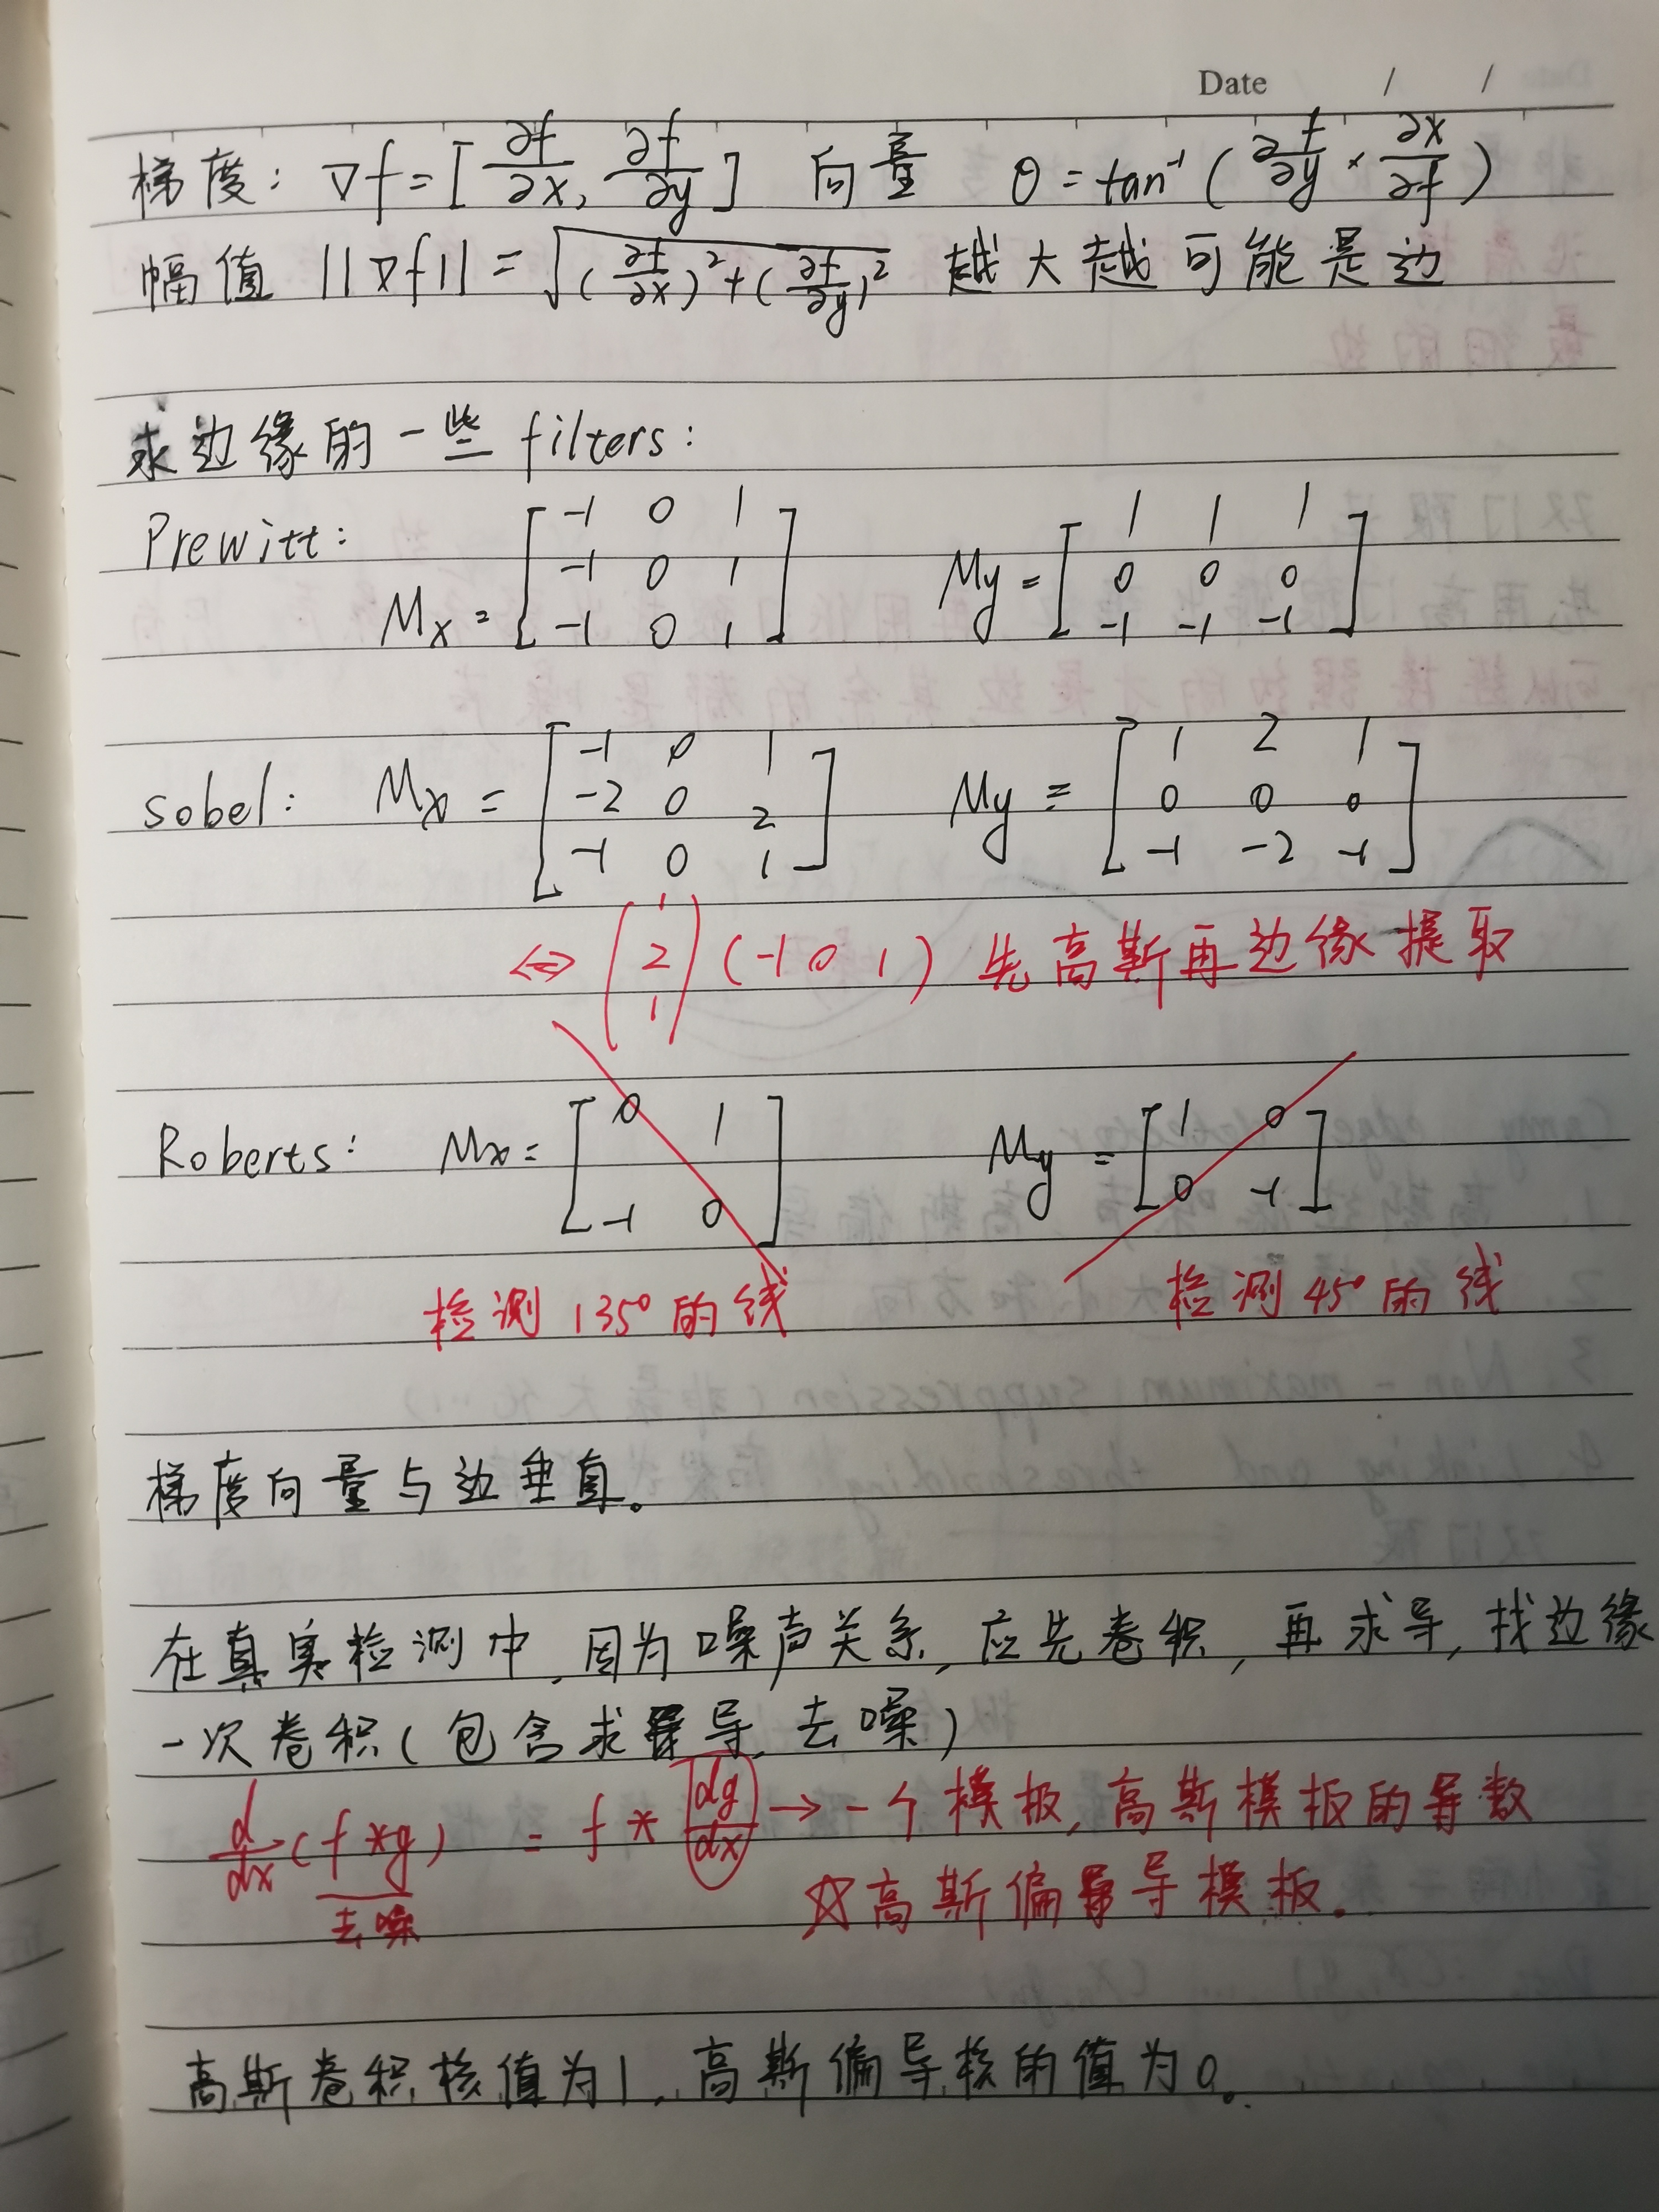 Date / /
梯度: ∇f = [∂f/∂x, ∂f/∂y] 向量 θ = tan⁻¹(∂f/∂y · ∂x/∂f)
幅值 ||∇f|| = √((∂f/∂x)² + (∂f/∂y)²) 越大越可能是边
求边缘的一些 filters:
Prewitt: Mx = [-1 0 1; -1 0 1; -1 0 1] My = [1 1 1; 0 0 0; -1 -1 -1]
sobel: Mx = [-1 0 1; -2 0 2; -1 0 1] My = [1 2 1; 0 0 0; -1 -2 -1]
⇔ (1; 2; 1) (-1 0 1) 先高斯再边缘提取
Roberts: Mx = [0 1; -1 0] My = [1 0; 0 -1]
检测135°的线 检测45°的线
梯度向量与边垂直。
在真实检测中,因为噪声关系,应先卷积,再求导,找边缘
一次卷积(包含求导,去噪)
d/dx (f*g) = f * dg/dx → 一个模板,高斯模板的导数
去噪 ☆高斯偏导模板。
高斯卷积核值为1,高斯偏导核的值为0。